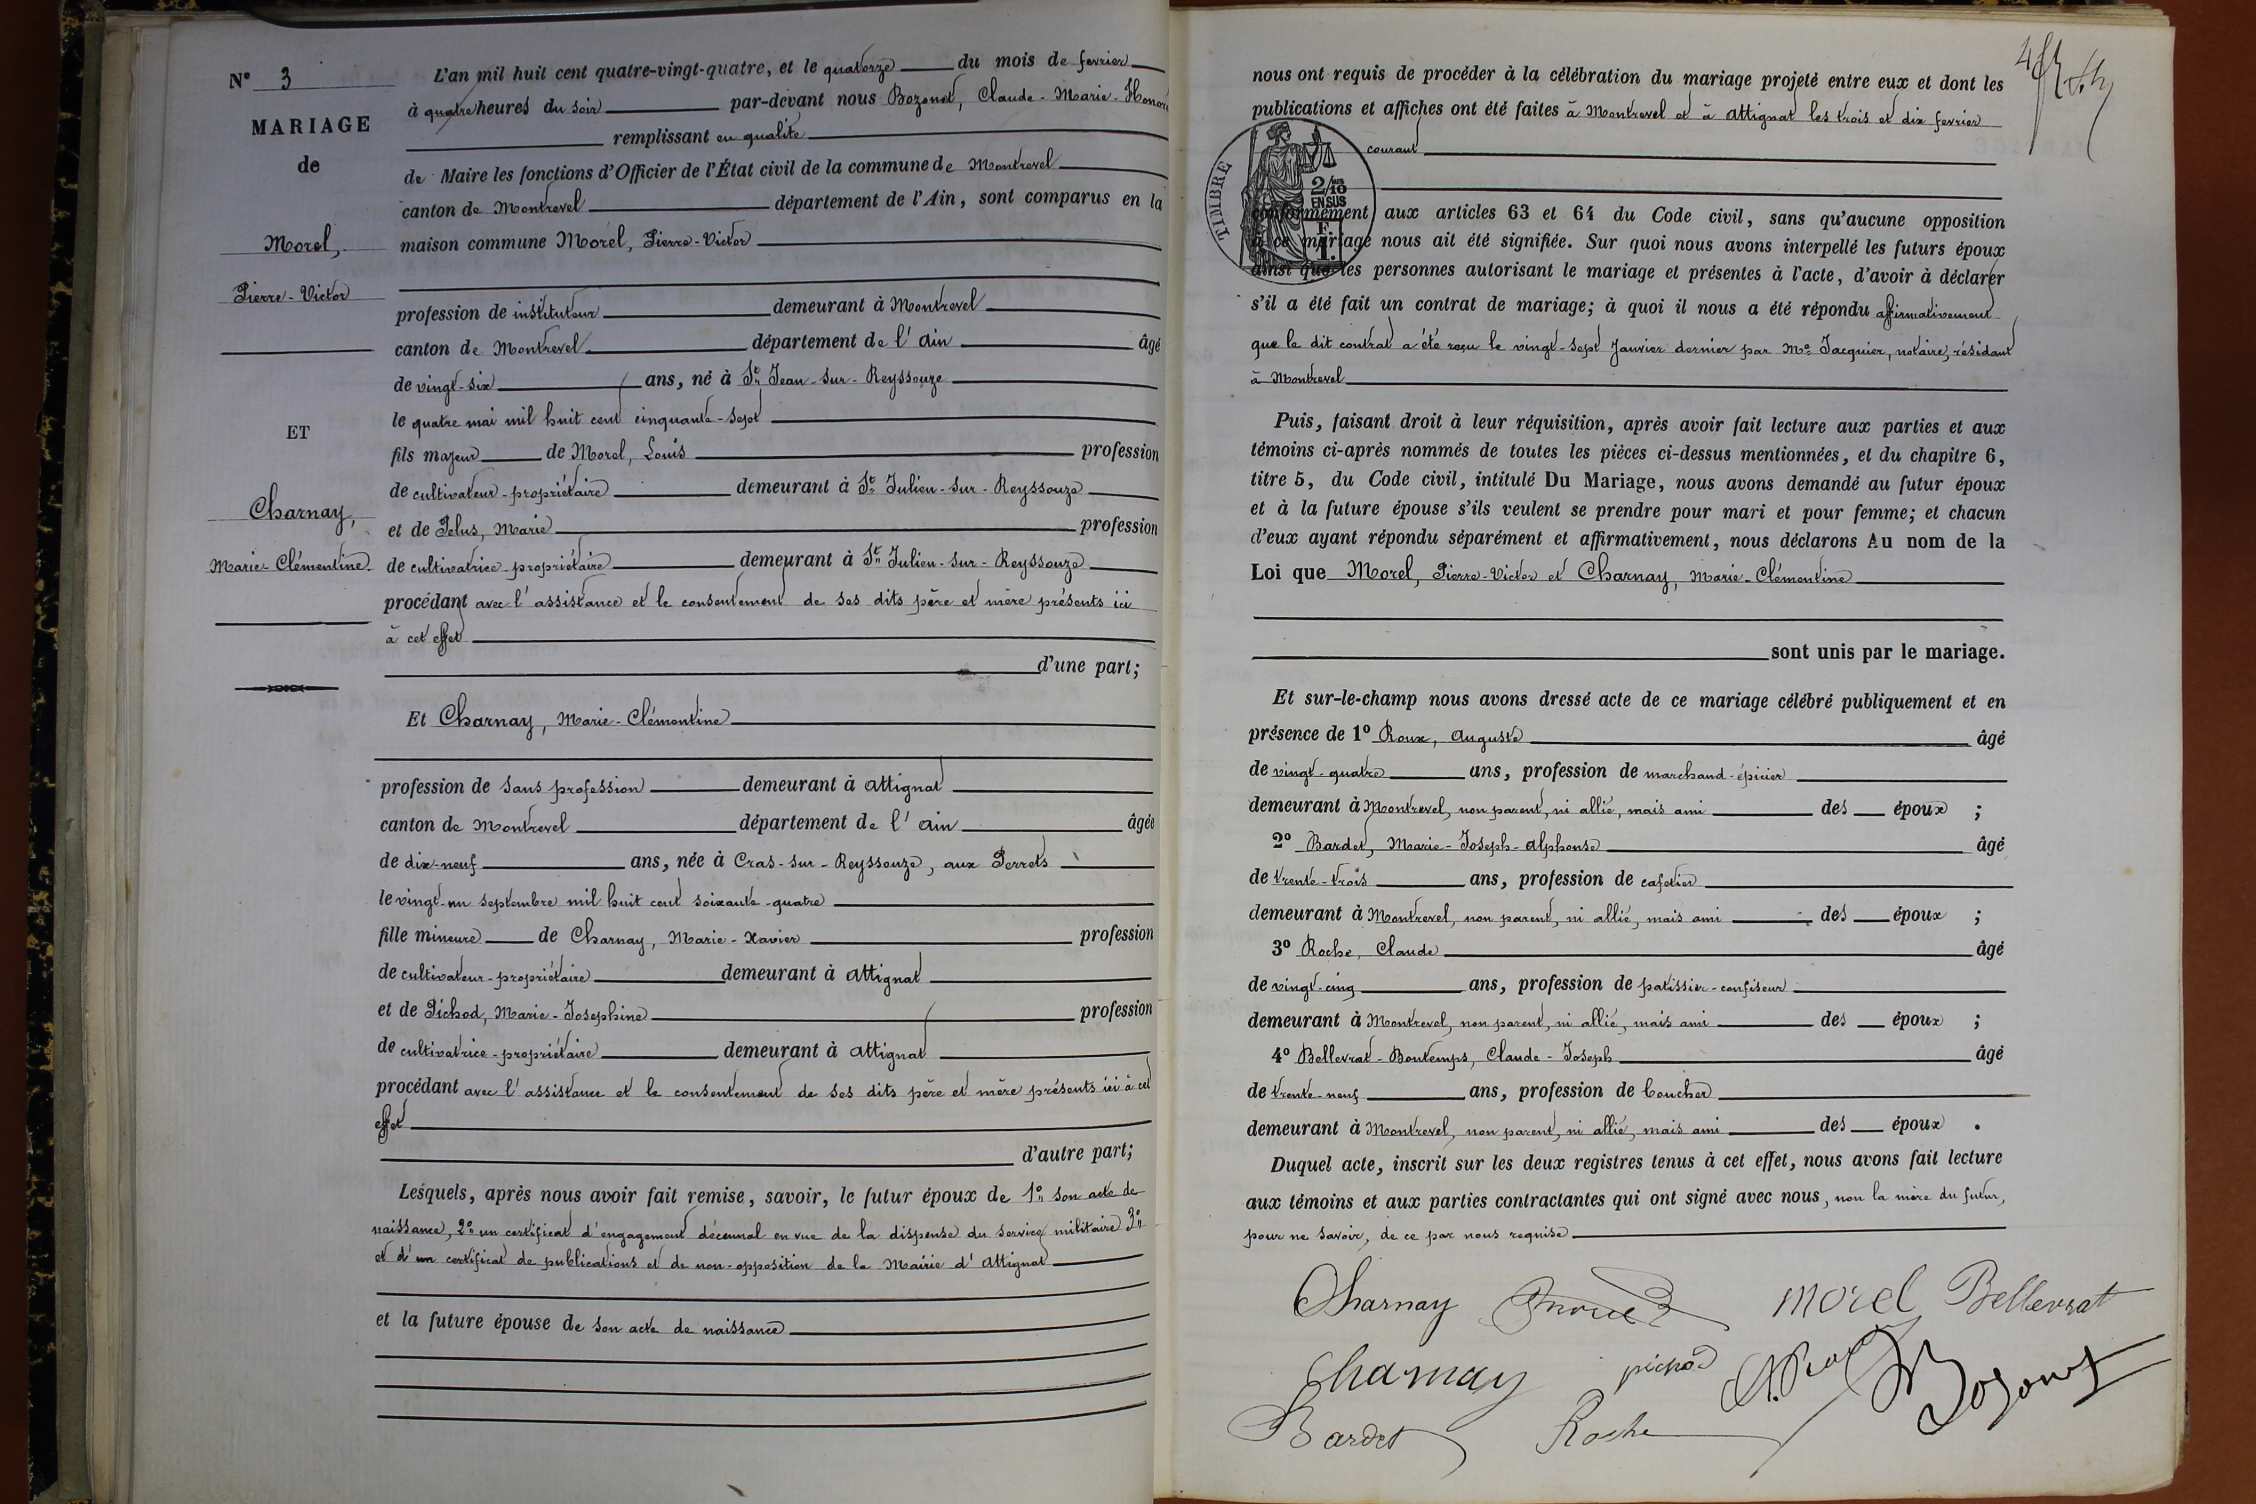 N° 3
MARIAGE
de
Morel,
Pierre-Victor
ET
Charnay,
Marie-Clémentine
L'an mil huit cent quatre-vingt-quatre, et le quatorze du mois de fevrier
à quatre heures du soir par-devant nous Bozonet, Claude-Marie-Honoré
remplissant en qualité
de Maire les fonctions d'Officier de l'État civil de la commune de Montrevel
canton de Montrevel département de l'Ain, sont comparus en la
maison commune Morel, Pierre-Victor
profession de instituteur demeurant à Montrevel
canton de Montrevel département de l'Ain âgé
de vingt-six ans, né à St Jean-sur-Reyssouze
le quatre mai mil huit cent cinquante-sept
fils majeur de Morel, Louis profession
de cultivateur-propriétaire demeurant à St Julien-sur-Reyssouze
et de Pelus, Marie profession
de cultivatrice-propriétaire demeurant à St Julien-sur-Reyssouze
procédant avec l'assistance et le consentement de ses dits père et mère présents ici
à cet effet
d'une part;
Et Charnay, Marie-Clémentine
profession de sans profession demeurant à Attignat
canton de Montrevel département de l'Ain âgée
de dix-neuf ans, née à Cras-sur-Reyssouze, aux Perrets
le vingt-un septembre mil huit cent soixante-quatre
fille mineure de Charnay, Marie-Xavier profession
de cultivateur-propriétaire demeurant à Attignat
et de Pichod, Marie-Josephine profession
de cultivatrice-propriétaire demeurant à Attignat
procédant avec l'assistance et le consentement de ses dits père et mère présents ici à cet
effet
d'autre part;
Lesquels, après nous avoir fait remise, savoir, le futur époux de 1° son acte de
naissance, 2° un certificat d'engagement décennal en vue de la dispense du service militaire 3°
et d'un certificat de publications et de non-opposition de la Mairie d'Attignat
et la future épouse de son acte de naissance
nous ont requis de procéder à la célébration du mariage projeté entre eux et dont les
publications et affiches ont été faites à Montrevel et à Attignat les trois et dix fevrier
courant
TIMBRE
2/10
EN SUS
F.
1.
conformément aux articles 63 et 64 du Code civil, sans qu'aucune opposition
à ce mariage nous ait été signifiée. Sur quoi nous avons interpellé les futurs époux
ainsi que les personnes autorisant le mariage et présentes à l'acte, d'avoir à déclarer
s'il a été fait un contrat de mariage; à quoi il nous a été répondu affirmativement
que le dit contrat a été reçu le vingt-sept Janvier dernier par Me Jacquier, notaire, résidant
à Montrevel
Puis, faisant droit à leur réquisition, après avoir fait lecture aux parties et aux
témoins ci-après nommés de toutes les pièces ci-dessus mentionnées, et du chapitre 6,
titre 5, du Code civil, intitulé Du Mariage, nous avons demandé au futur époux
et à la future épouse s'ils veulent se prendre pour mari et pour femme; et chacun
d'eux ayant répondu séparément et affirmativement, nous déclarons Au nom de la
Loi que Morel, Pierre-Victor et Charnay, Marie-Clémentine
sont unis par le mariage.
Et sur-le-champ nous avons dressé acte de ce mariage célébré publiquement et en
présence de 1° Roux, Auguste âgé
de vingt-quatre ans, profession de marchand-épicier
demeurant à Montrevel, non parent, ni allié, mais ami des époux ;
2° Bardet, Marie-Joseph-Alphonse âgé
de trente-trois ans, profession de cafetier
demeurant à Montrevel, non parent, ni allié, mais ami des époux ;
3° Roche, Claude âgé
de vingt-cinq ans, profession de patissier-confiseur
demeurant à Montrevel, non parent, ni allié, mais ami des époux ;
4° Bellevrat-Bontemps, Claude-Joseph âgé
de trente-neuf ans, profession de boucher
demeurant à Montrevel, non parent, ni allié, mais ami des époux .
Duquel acte, inscrit sur les deux registres tenus à cet effet, nous avons fait lecture
aux témoins et aux parties contractantes qui ont signé avec nous, non la mère du futur,
pour ne savoir, de ce par nous requise
Charnay Morel Morel Bellevrat
Charnay pichod A. Roux Bozonet
Bardet Roche